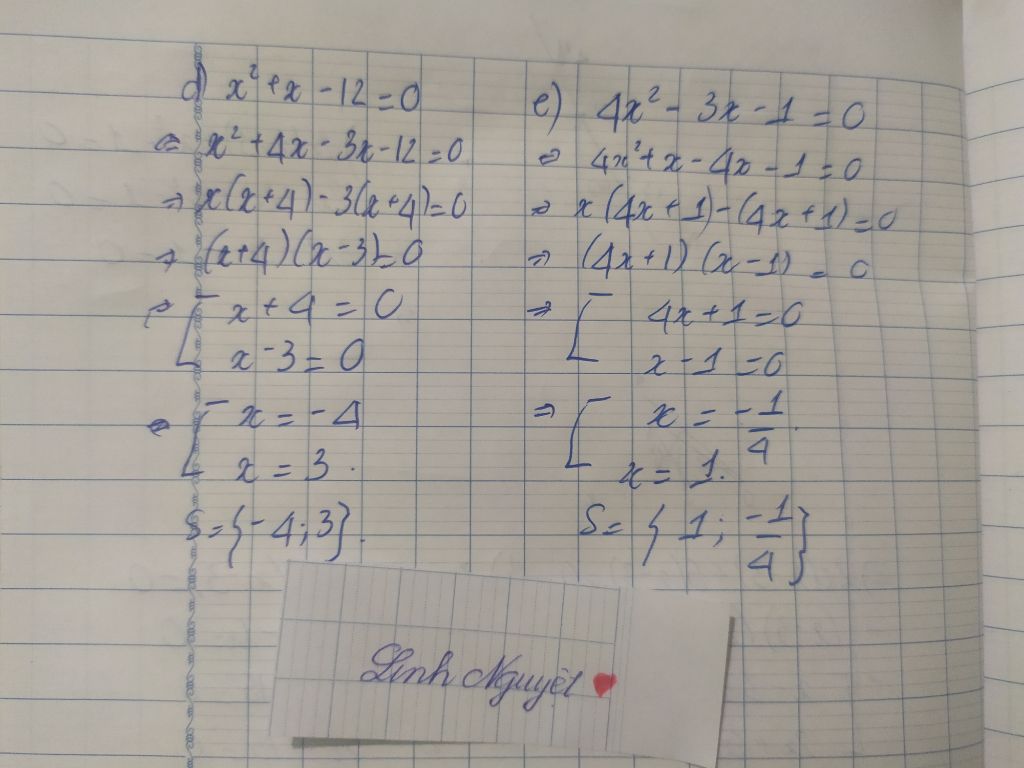 d) x² + x - 12 = 0
⇔ x² + 4x - 3x - 12 = 0
⇒ x(x+4) - 3(x+4) = 0
⇒ (x+4)(x-3) = 0
⇔ [ x + 4 = 0
x - 3 = 0
⇔ [ x = -4
x = 3.
S = {-4; 3}.
e) 4x² - 3x - 1 = 0
⇔ 4x² + x - 4x - 1 = 0
⇒ x(4x+1) - (4x+1) = 0
⇒ (4x+1)(x-1) = 0
⇒ [ 4x + 1 = 0
x - 1 = 0
⇒ [ x = -1/4.
x = 1.
S = {1; -1/4}
Linh Nguyệt